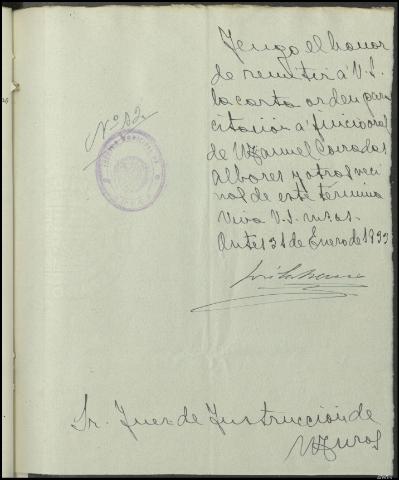 Tengo el honor
de remitir á V.S.
la carta orden para
citación á juicio oral
de Manuel Corrados
Albores y otros veci
nos de este término
Viva V.S. m. as.
Outes 31 de Enero de 1933
Nº 12
Sr. Juez de Instrucción de
Muros